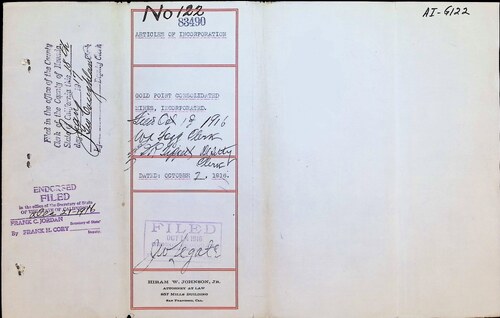 No 122
83490
ARTICLES OF INCORPORATION
GOLD POINT CONSOLIDATED
MINES, INCORPORATED.
Filed Oct 18 1916
Clerk
Deputy
Clerk
DATED: OCTOBER 2, 1916.
FILED
OCT 1916
HIRAM W. JOHNSON, JR.
ATTORNEY AT LAW
857 MILLS BUILDING
SAN FRANCISCO, CAL.
AI-6122
Filed in the office of the County
Clerk of the County of
State of California this
day
Deputy Clerk
ENDORSED
FILED
in the office of the Secretary of State
OF THE STATE OF CALIFORNIA
1916
FRANK C. JORDAN
Secretary of State
By FRANK H. CORY